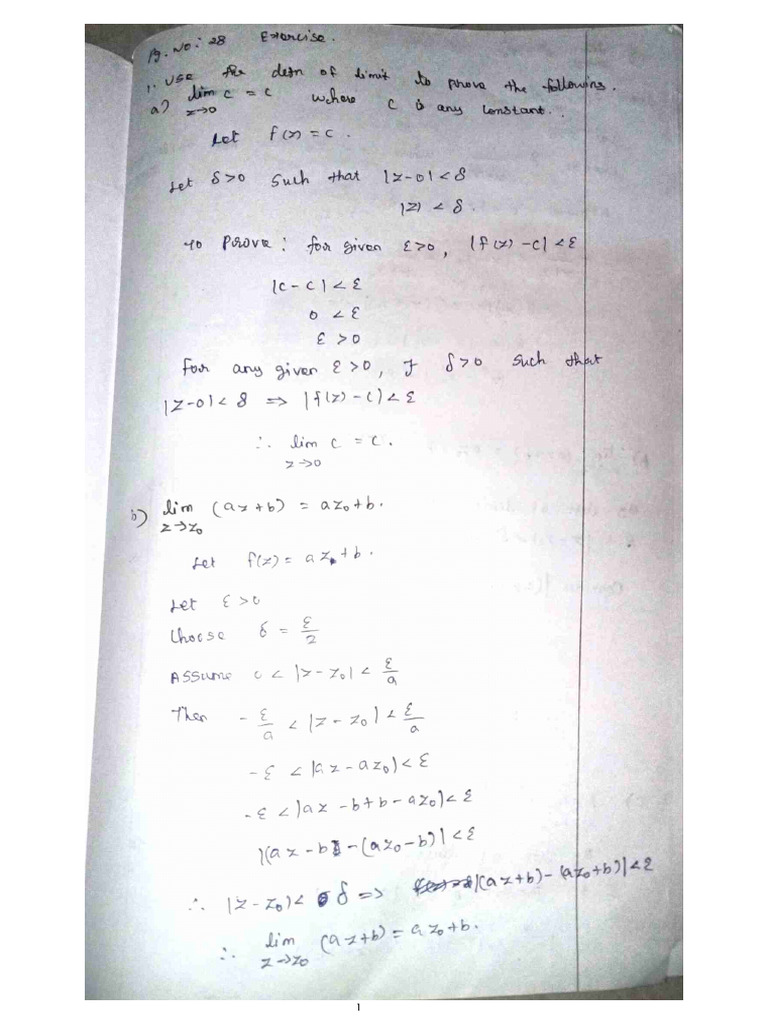 Pg. No: 28 Exercise.
1. Use the defn of limit to prove the following.
a) lim z→0 c = c where c is any constant.
Let f(z) = c.
Let δ>0 such that |z-0|<δ
|z| < δ.
To prove: for given ε>0, |f(z)-c|<ε
|c-c|<ε
0 <ε
ε >0
For any given ε>0, ∃ δ>0 such that
|z-0|<δ ⇒ |f(z)-c|<ε
∴ lim z→0 c = c.
b) lim z→z₀ (az+b) = az₀+b.
Let f(z) = az+b.
Let ε>0
Choose δ = ε/2
Assume 0 < |z-z₀| < ε/a
Then -ε/a < |z-z₀| < ε/a
-ε < |az-az₀| < ε
-ε < |az-b+b-az₀| < ε
|(az-b)-(az₀-b)| < ε
∴ |z-z₀|< δ ⇒ |(az+b)-(az₀+b)|<ε
∴ lim z→z₀ (az+b) = az₀+b.
1